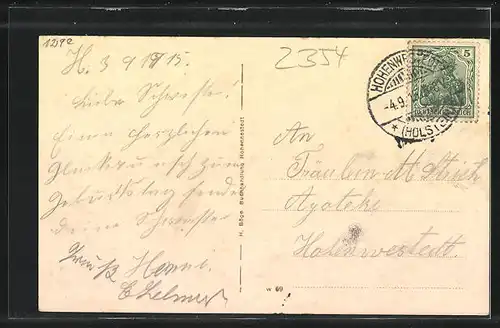 1292
2354
H. 3 9 1915.
Liebe Schwester!
Einen herzlichen
Glückwunsch zum
Geburtstag sendet
deine Schwester
Hanne.
H. Böge Buchhandlung Hohenwestedt
w 69
HOHENWESTEDT
-4.9.15
* (HOLSTEIN)
5
DEUTSCHES REICH
An
Fräulein M
Apoteke
Hohenwestedt.